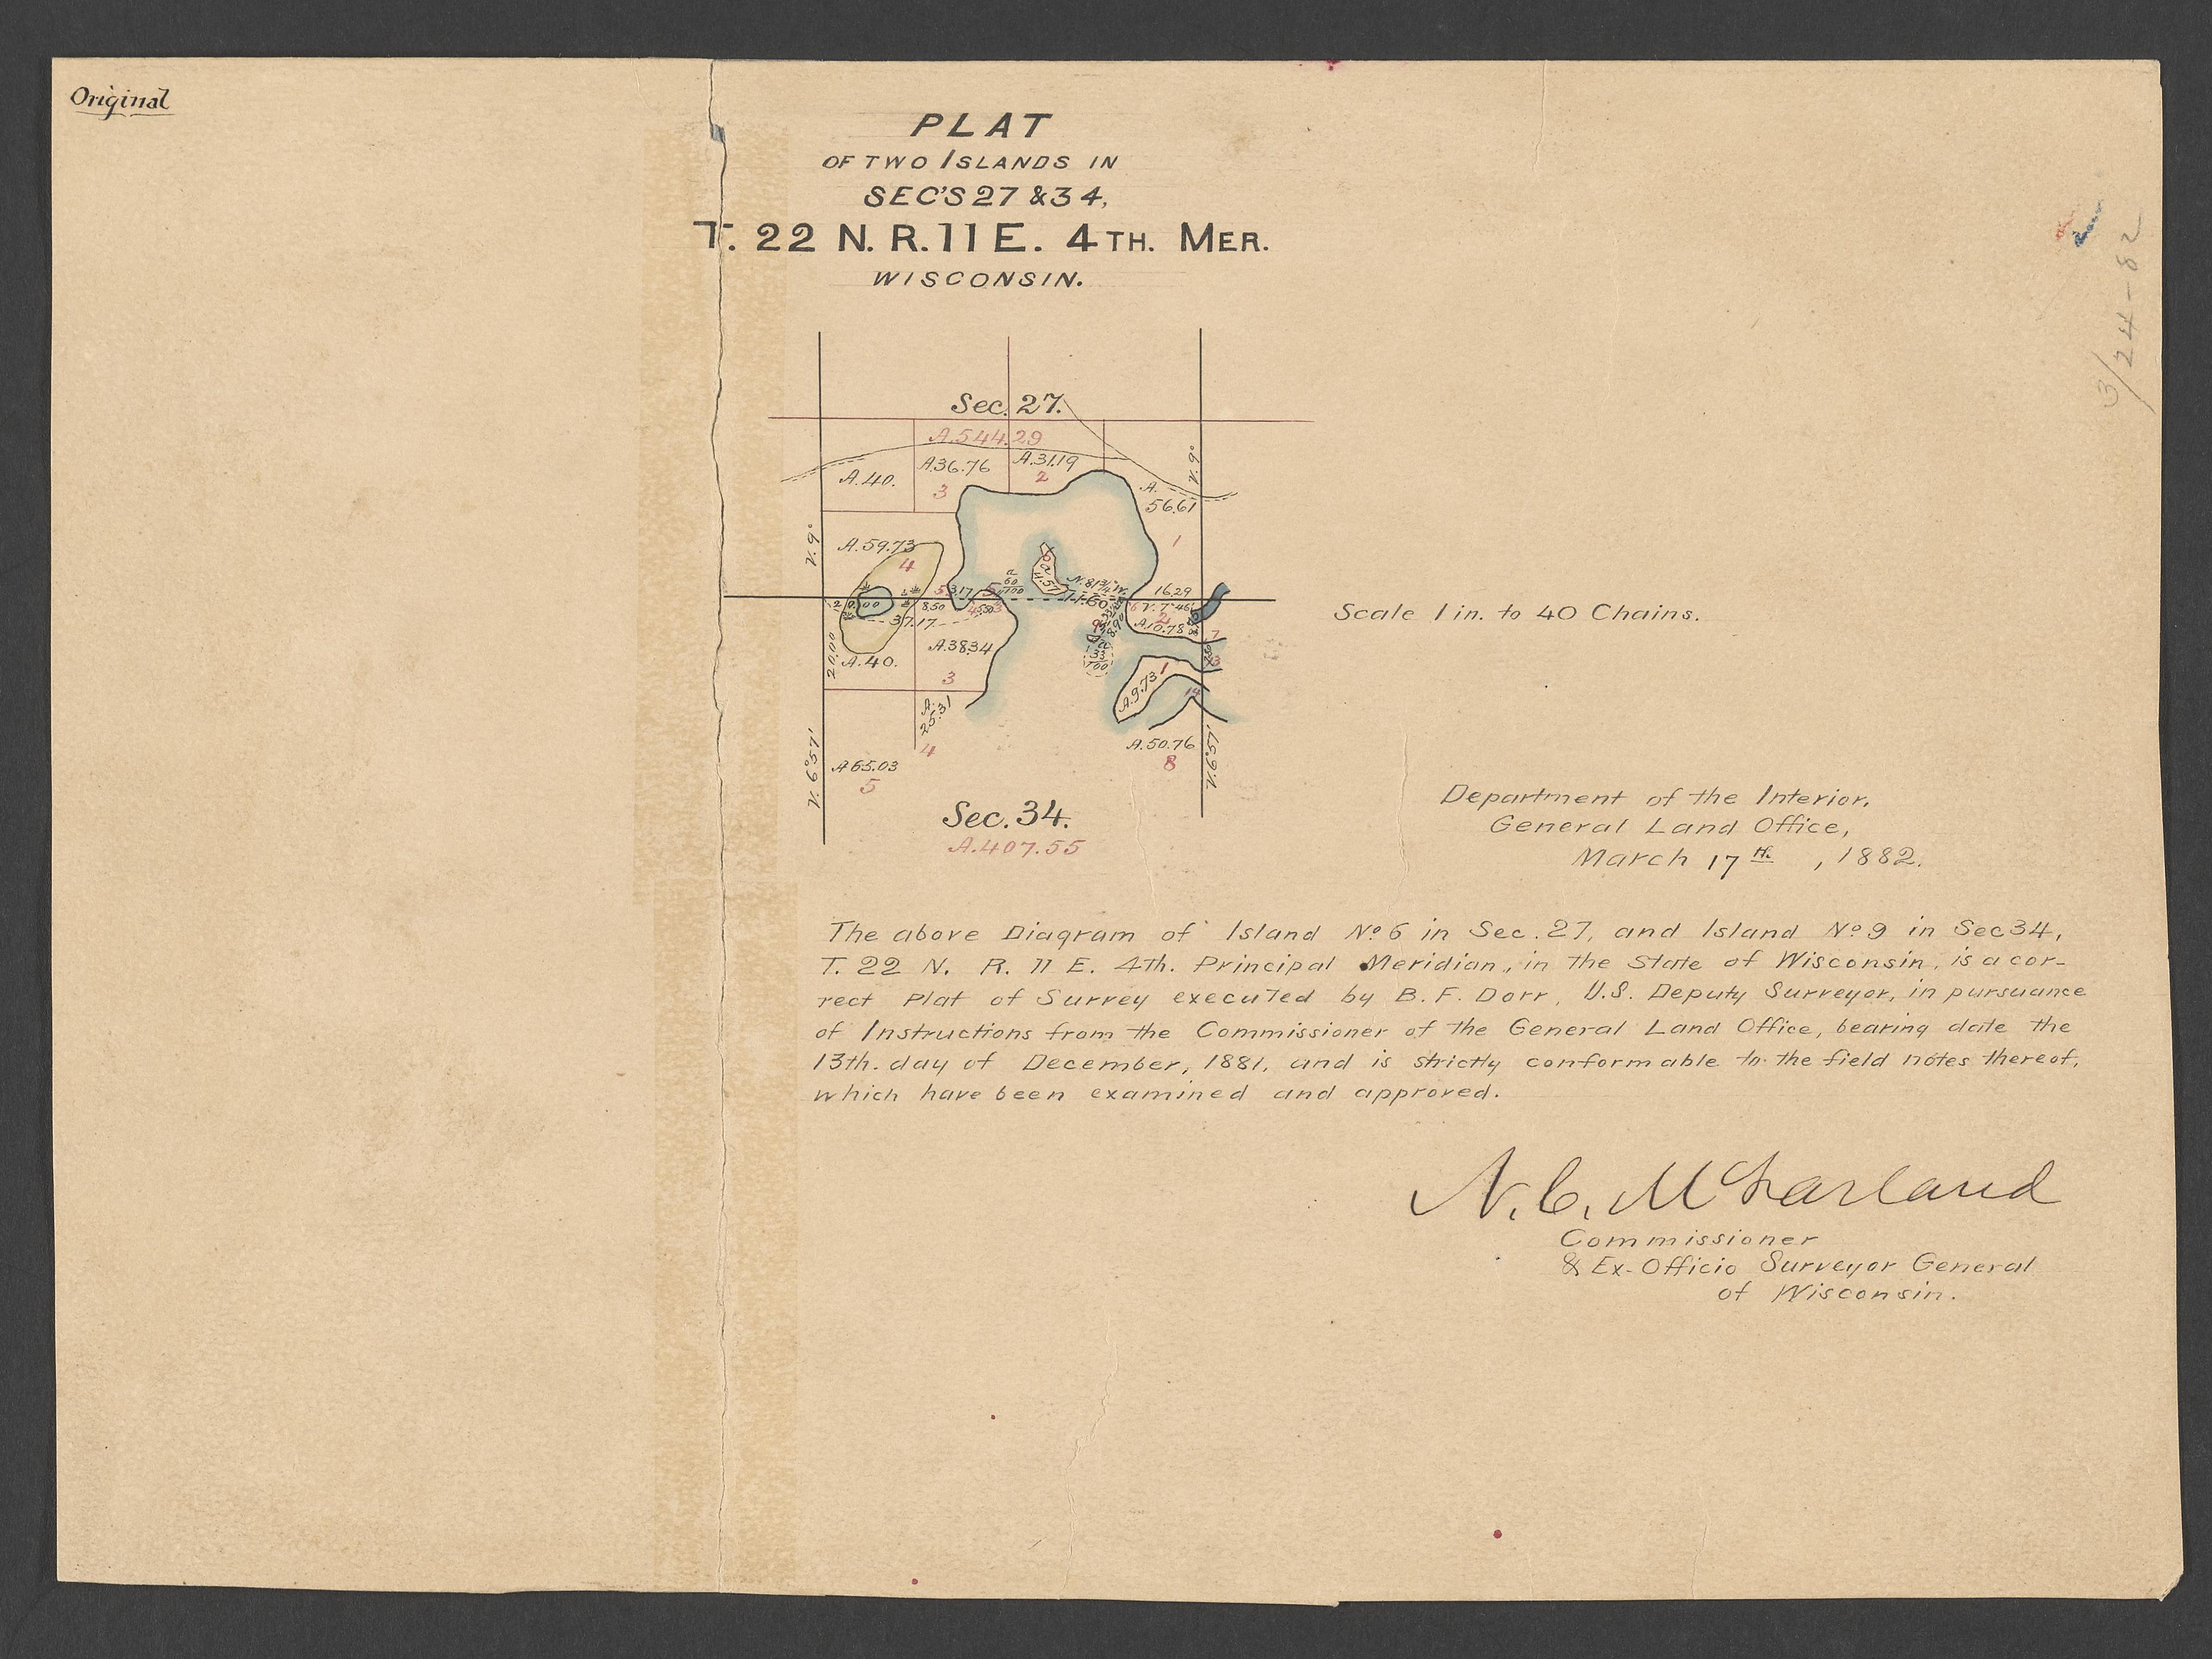 Original
PLAT
OF TWO ISLANDS IN
SEC'S 27 & 34,
T. 22 N. R. 11 E. 4TH. MER.
WISCONSIN.
3/24-82
Sec. 27.
A.544.29
A.36.76
A.31.19
A.40.
3
2
V. 9°
A.
56.61
1
V. 9°
A.59.73
4
3.17
a
60/100
6
a
4.57
N. 81 3/4 W.
16.29
8.50
37.17
V. 7° 46'
2
A.10.78
9
a
33/100
7
20.00
A.40.
A.38.34
3
A.
25.31
4
1
A.9.73
A.50.76
8
V. 6° 57'
V. 6° 57'
A 65.03
5
Sec. 34.
A.407.55
Scale 1 in. to 40 Chains.
Department of the Interior,
General Land Office,
March 17th , 1882.
The above Diagram of Island No 6 in Sec. 27, and Island No 9 in Sec 34,
T. 22 N. R. 11 E. 4th. Principal Meridian, in the State of Wisconsin, is a cor-
rect Plat of Survey executed by B. F. Dorr, U.S. Deputy Surveyor, in pursuance
of Instructions from the Commissioner of the General Land Office, bearing date the
13th. day of December, 1881, and is strictly conformable to the field notes thereof,
which have been examined and approved.
N. C. McFarland
Commissioner
& Ex-Officio Surveyor General
of Wisconsin.